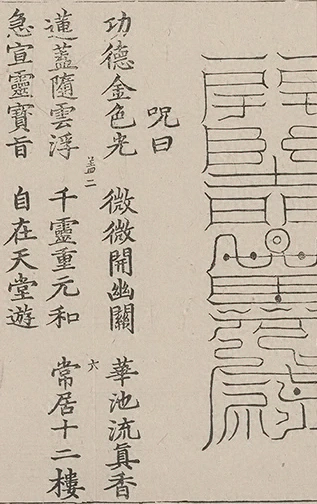 咒曰
功德金色光 微微開幽關 華池流真香
蓮蓋隨雲浮 千靈重元和 常居十二樓
急宣靈寶旨 自在天堂遊
盖二
六